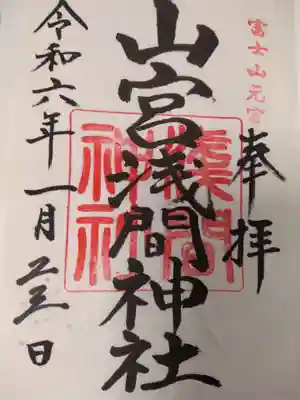 富士山元宮
奉拝
山宮浅間神社
淺間
神社
令和六年一月二三日